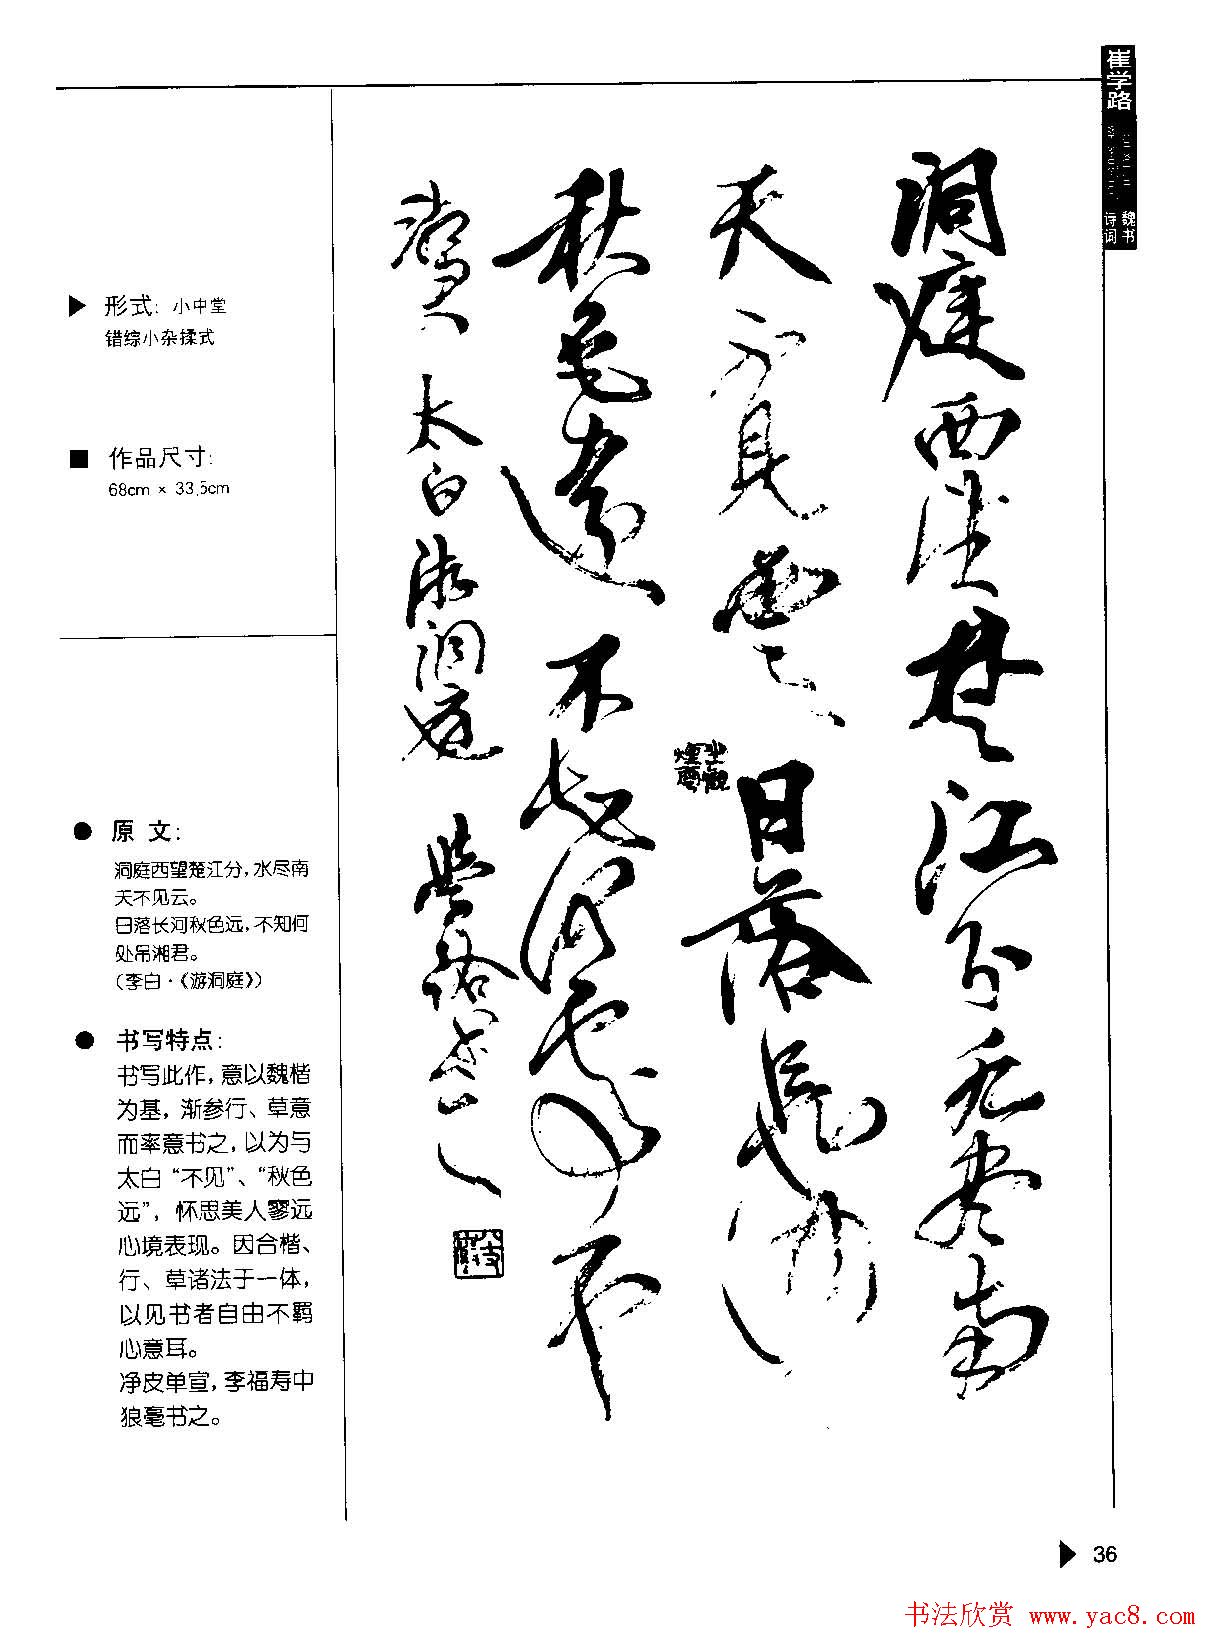 崔学路
魏书
诗词
洞庭西望楚江分水尽南
天不見雲日落長河
秋色遠不知何處弔
湘君 太白游洞庭 學路書
▶ 形式：小中堂
错综小杂揉式
■ 作品尺寸：
68cm × 33.5cm
● 原 文：
洞庭西望楚江分，水尽南
天不见云。
日落长河秋色远，不知何
处吊湘君。
（李白·《游洞庭》）
● 书写特点：
书写此作，意以魏楷
为基，渐参行、草意
而率意书之，以为与
太白“不见”、“秋色
远”，怀思美人寥远
心境表现。因合楷、
行、草诸法于一体，
以见书者自由不羁
心意耳。
净皮单宣，李福寿中
狼毫书之。
▶ 36
书法欣赏 www.yac8.com